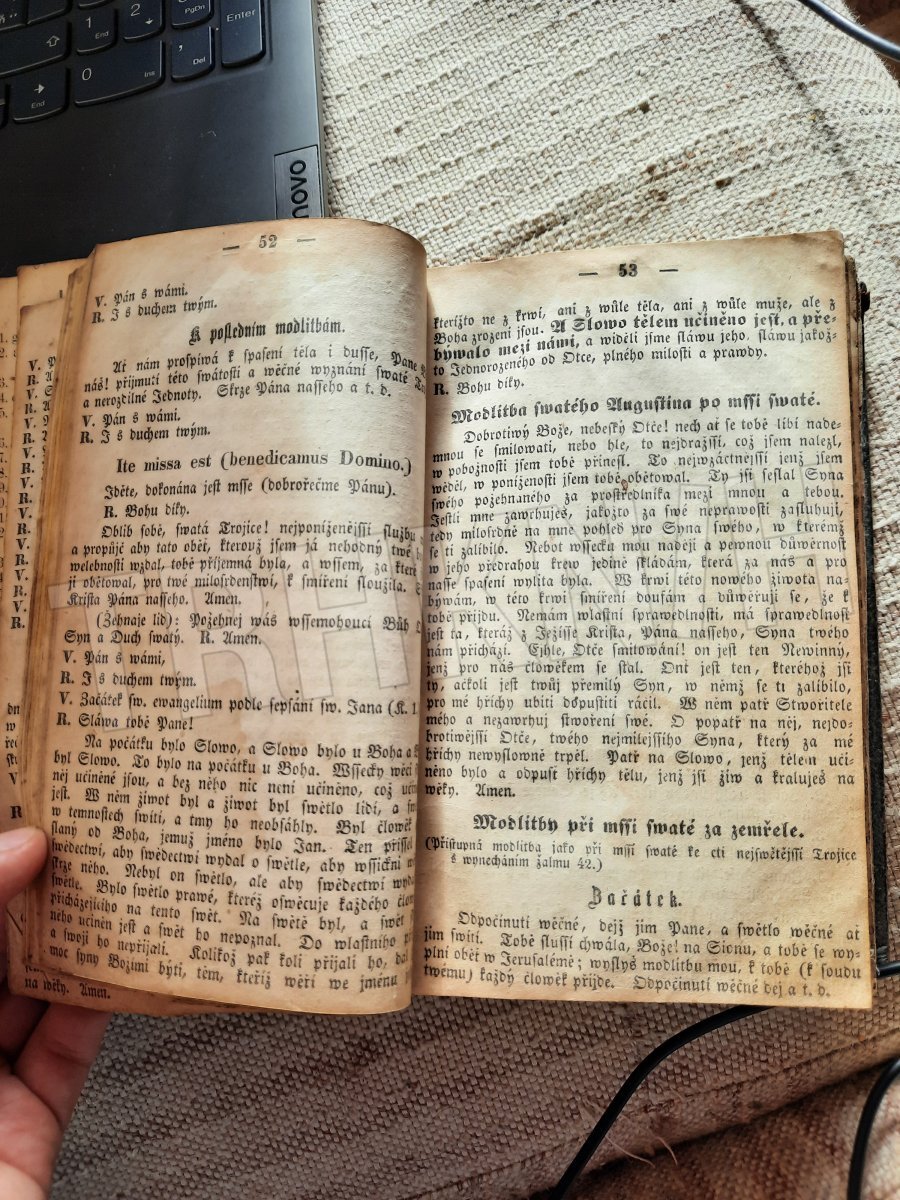 PgDn
Enter
1
End
2
,
Del
0
Ins
End
novo
— 52 —
V. Pán s wámi.
R. J s duchem twým.
K posledním modlitbám.
Ať nám prospíwá k spasení těla i dusse, Pane
náš! přijmutí této swátosti a wěčné wyznání swaté
a nerozdílné Jednoty. Skrze Pána nasseho a t. d.
V. Pán s wámi.
R. J s duchem twým.
Ite missa est (benedicamus Domino.)
Jděte, dokonána jest msse (dobrořečme Pánu).
R. Bohu díky.
Oblib sobě, swatá Trojice! nejponíženějssí službu
a propůjč aby tato oběť, kterouž jsem já nehodný twé
welebnosti wzdal, tobě příjemná byla, a wssem, za které
ji obětowal, pro twé milosrdenstwí, k smíření sloužila.
Krista Pána nasseho. Amen.
(Žehnaje lid): Požehnej wás wssemohoucí Bůh
Syn a Duch swatý. R. Amen.
V. Pán s wámi,
R. J s duchem twým.
V. Začátek sw. ewangelium podle sepsání sw. Jana (K. 1.
R. Sláwa tobě Pane!
Na počátku bylo Slowo, a Slowo bylo u Boha a
byl Slowo. To bylo na počátku u Boha. Wssecky wěci
něj učiněné jsou, a bez něho nic není učiněno, což
jest. W něm žiwot byl a žiwot byl swětlo lidí, a
w temnostech swítí, a tmy ho neobsáhly. Byl člowěk
slaný od Boha, jemuž jméno bylo Jan. Ten přissel
swědectwí, aby swědectwí wydal o swětle, aby wssickni
skrze něho. Nebyl on swětlo, ale aby swědectwí
swětle. Bylo swětlo prawé, kteréž oswěcuje každého
přicházejícího na tento swět. Na swětě byl, a swět
něho učiněn jest a swět ho nepoznal. Do wlastního
a swoji ho nepřijali. Kolikož pak koli přijali ho, dal
moc syny Božími býti, těm, kteříž wěří we jménu
na wěky. Amen.
— 53 —
kterížto ne z krwí, ani z wůle těla, ani z wůle muže, ale z
Boha zrozeni jsou. A Slowo tělem učiněno jest, a pře-
býwalo mezi námi, a widěli jsme sláwu jeho, sláwu jakož-
to Jednorozeného od Otce, plného milosti a prawdy.
R. Bohu díky.
Modlitba swatého Augustina po mssi swaté.
Dobrotiwý Bože, nebeský Otče! nech ať se tobě líbí nade-
mnou se smilowati, nebo hle, to nejdražssí, což jsem nalezl,
w pobožnosti jsem tobě přinesl. To nejwzáctnějssí jenž jsem
wěděl, w poníženosti jsem tobě obětowal. Ty jsi seslal Syna
swého požehnaného za prostředníka mezi mnou a tebou.
Jestli mne zawrhuješ, jakožto za swé neprawosti zasluhuji,
tedy milosrdně na mne pohleď pro Syna swého, w kterémž
se ti zalíbilo. Neboť wssecku mou naději a pewnou důwěrnost
w jeho předrahou krew jedině skládám, která za nás a pro
nasse spasení wylita byla. W krwi této nowého žiwota na-
býwám, w této krwi smíření doufám a důwěřuji se, že k
tobě přijdu. Nemám wlastní sprawedlnosti, má sprawedlnost
jest ta, kteráž z Ježísse Krista, Pána nasseho, Syna twého
nám přichází. Ejhle, Otče smilowání! on jest ten Newinný,
jenž pro nás člowěkem se stal. Onť jest ten, kteréhož jsi
ty, ačkoli jest twůj přemilý Syn, w němž se ti zalíbilo,
pro mé hříchy ubíti dopustiti ráčil. W něm patř Stwořitele
mého a nezawrhuj stwoření swé. O popatř na něj, nejdo-
brotiwějssí Otče, twého nejmilejssího Syna, který za mé
hříchy newyslowně trpěl. Patř na Slowo, jenž tělem uči-
něno bylo a odpusť hříchy tělu, jenž jsi žiw a kraluješ na
wěky. Amen.
Modlitby při mssi swaté za zemřele.
(Přístupná modlitba jako při mssi swaté ke cti nejswětějssí Trojice
s wynecháním žalmu 42.)
Začátek.
Odpočinutí wěčné, dejž jim Pane, a swětlo wěčné ať
jim swítí. Tobě slussí chwála, Bože! na Sionu, a tobě se wy-
plní oběť w Jerusalémě; wyslyš modlitbu mou, k tobě (k soudu
twému) každý člowěk přijde. Odpočinutí wěčné dej a t. d.